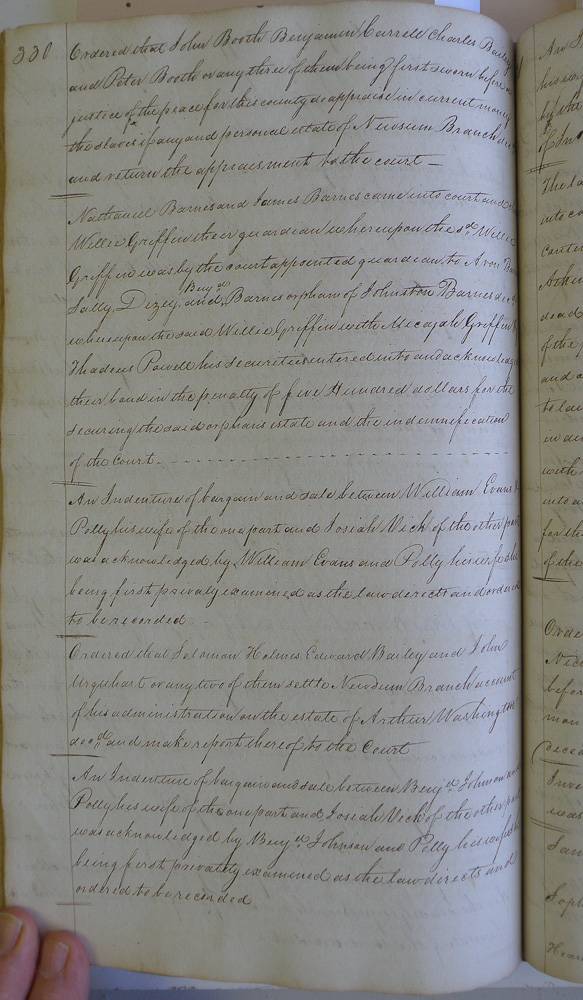 330
Ordered that John Booth Benjamin Carrell Charles Bailey
and Peter Booth or any three of them being first sworn before a
justice of the peace for this county do appraise in current money
the slaves if any and personal estate of Newsum Branch
and return the appraisment to the court —
Nathaniel Barnes and James Barnes came into court and
Willie Griffin their guardian whereupon the sd. Willie
Griffin was by the court appointed guardian to
Sally, Dizey, and Benjn. Barnes orphans of Johnston Barnes
whereupon the said Willie Griffin with Micajah Griffin
Thadeus Powell his securities entered into and acknowledged
their bond in the penalty of five Hundred dollars for the
securing the said orphans estate and the indemnification
of the Court
An Indenture of bargain and sale between William Evans
Polly his wife of the one part and Josiah Vick of the other part
was acknowledged by William Evans and Polly his wife she
being first privaly examined as the law directs and ordered
to be recorded
Ordered that Solomon Holmes Edward Bailey and John
Urquhart or any two of them settle Newsum Branch account
of his administration on the estate of Arthur Washington
decd. and make report thereof to the Court
An Indenture of bargain and sale between Benjn. Johnson and
Polly his wife of the one part and Josiah Vick of the other part
was acknowledged by Benjn. Johnson and Polly his wife
being first privately examined as the law directs and
ordered to be recorded